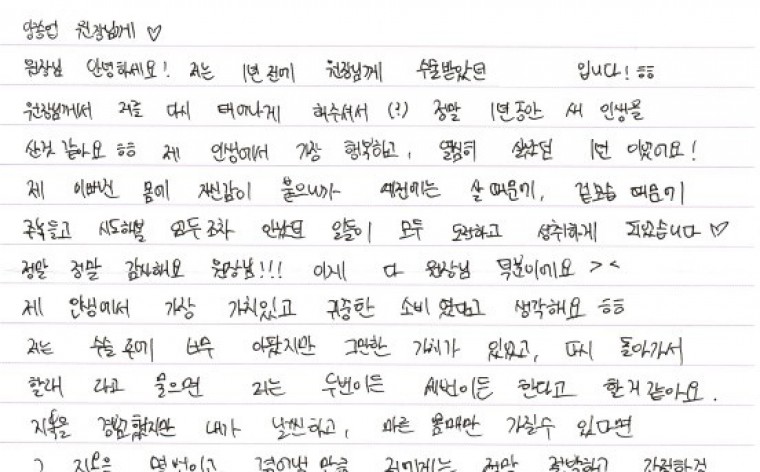 양동업 원장님께 ♡
원장님 안녕하세요! 저는 1년 전에 원장님께 수술받았던 입니다! ㅎㅎ
원장님께서 저를 다시 태어나게 해주셔서 (?) 정말 1년동안 새 인생을
산것 같아요 ㅎㅎ 제 인생에서 가장 행복하고, 열심히 살았던 1년 이었어요!
제 이뻐진 몸에 자신감이 붙으니까 예전에는 살 때문에, 겉모습 때문에
주눅들고 시도해볼 엄두조차 안났던 일들이 모두 도전하고 성취하게 되었습니다 ♡
정말 정말 감사해요 원장님!!! 이게 다 원장님 덕분이에요 > <
제 인생에서 가장 가치있고 귀중한 소비 였다고 생각해요 ㅎㅎ
저는 수술 후에 너무 아팠지만 그만한 가치가 있었고, 다시 돌아가서
할래 라고 물으면 저는 두번이든 세번이든 한다고 할거 같아요.
지옥을 경험했지만 내가 날씬하고, 마른 몸매만 가질수 있다면
그 지옥은 몇번이고 정말